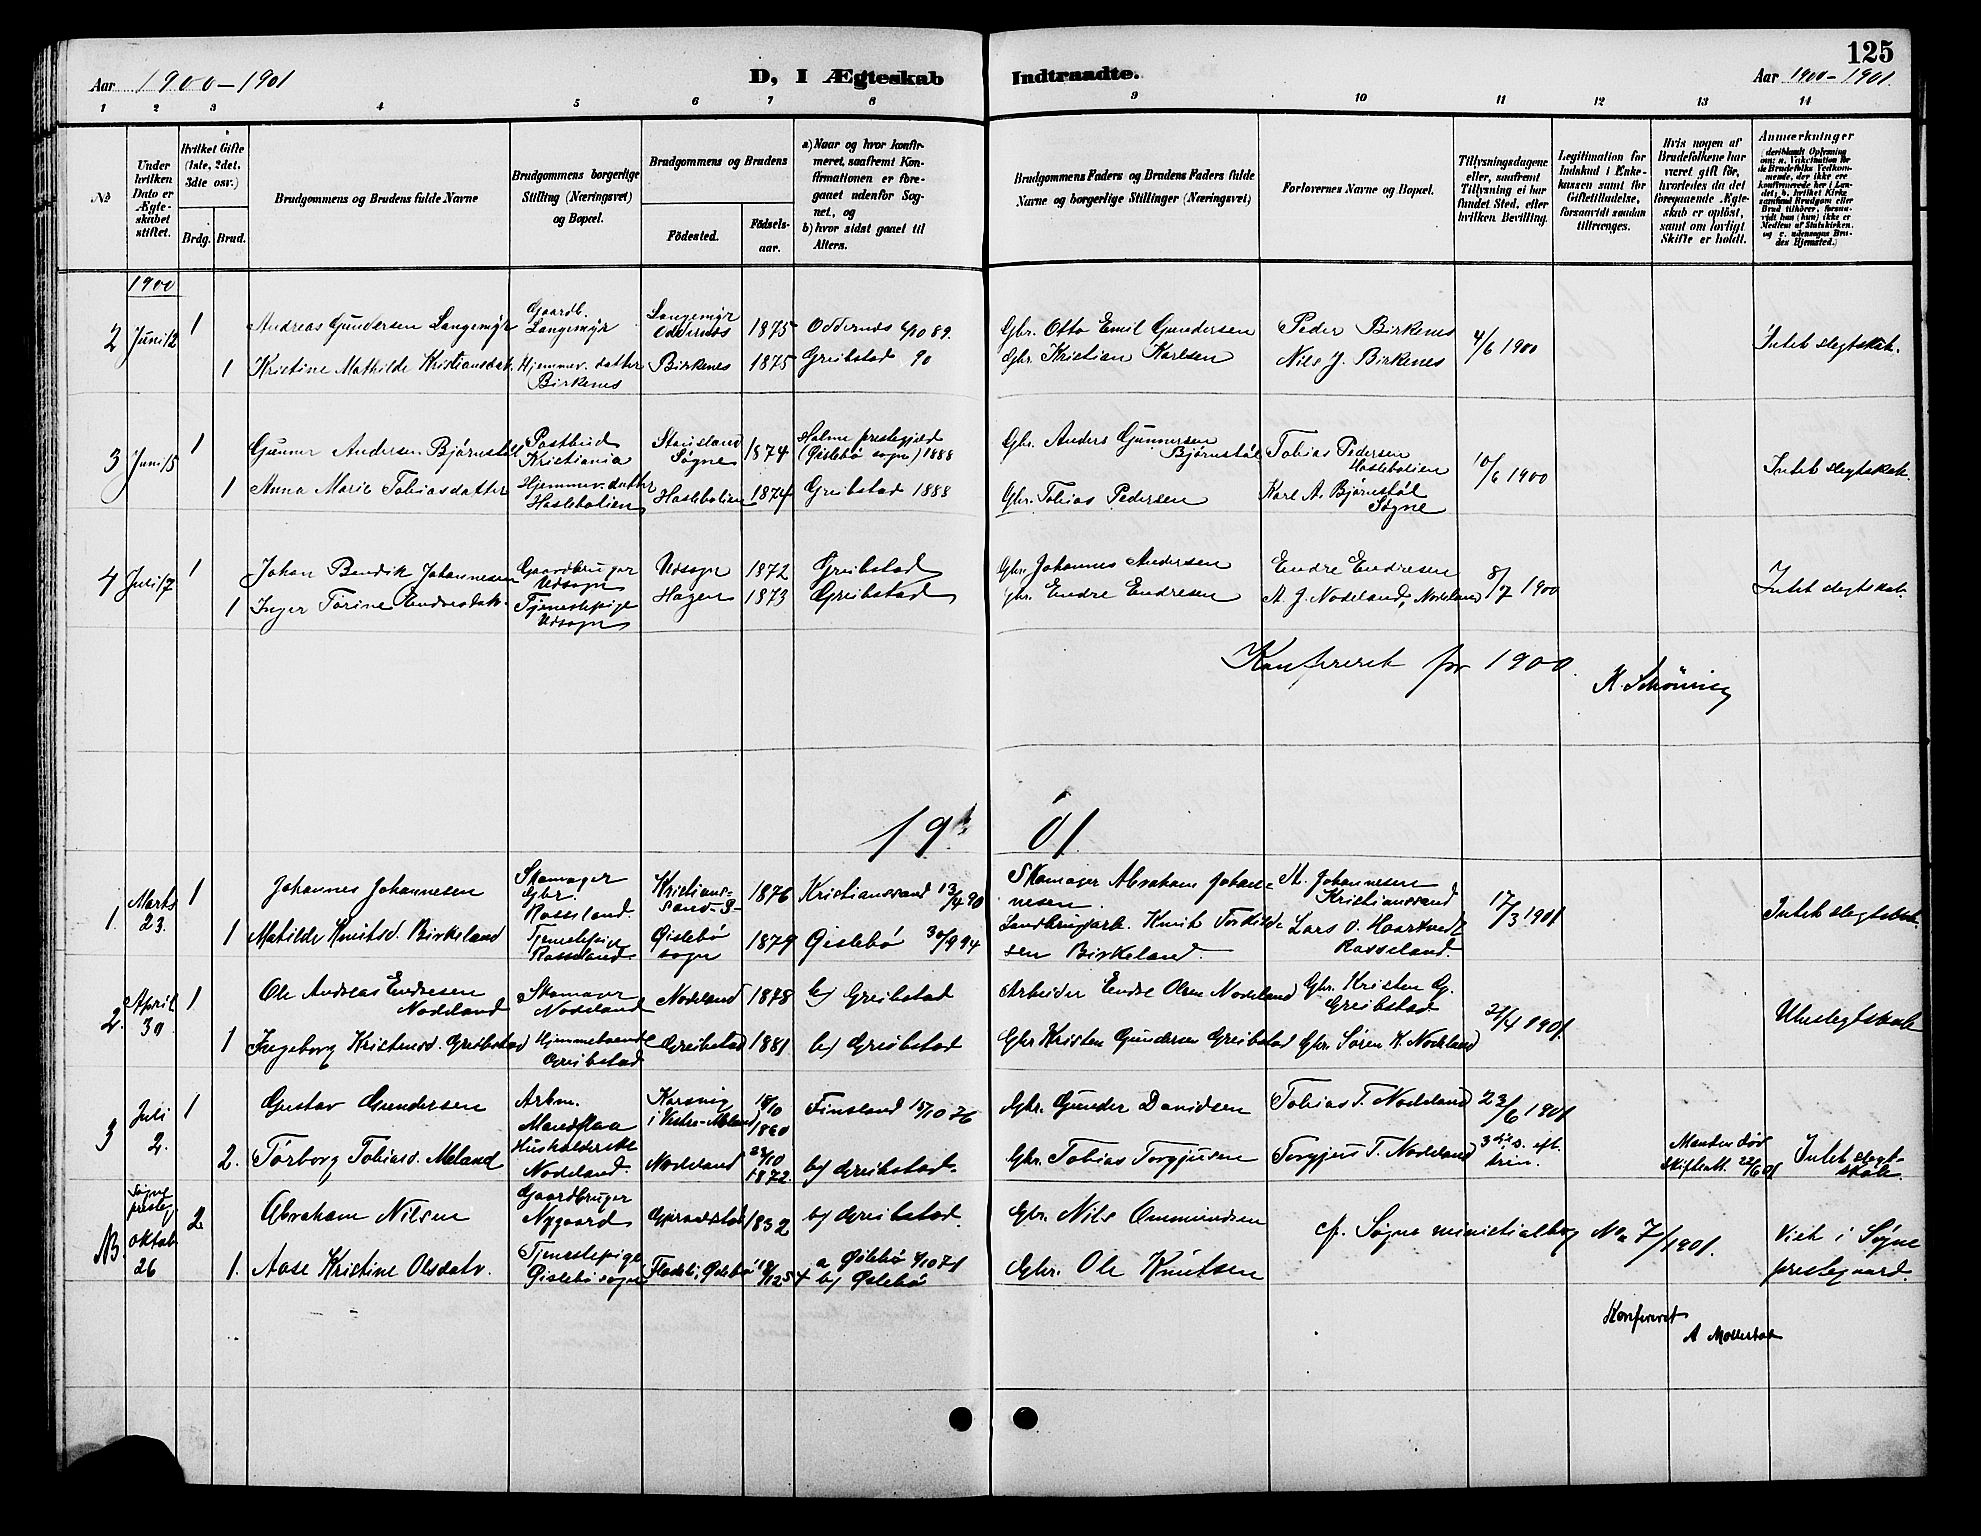 125
Aar 1900-1901
D, I Ægteskab Indtraadte.
Aar 1900-1901.
1 2 3 4 5 6 7 8 9 10 11 12 13 14
№
Under hvilken Dato er Ægteskabet stiftet.
Hvilket Gifte (1ste, 2det, 3die osv.)
Brdg. Brud.
Brudgommens og Brudens fulde Navne
Brudgommens borgerlige Stilling (Næringsvei) og Bopæl.
Brudgommens og Brudens
Fødested.
Fødselsaar.
a) Naar og hvor konfirmeret, saafremt Konfirmationen er foregaaet udenfor Sognet, og
b) hvor sidst gaaet til Alters.
Brudgommens Faders og Brudens Faders fulde Navne og borgerlige Stillinger (Næringsvei)
Forlovernes Navne og Bopæl.
Tillysningsdagene eller, saafremt Tillysning ei har fundet Sted, efter hvilken Bevilling.
Legitimation for Indskud i Enkekassen samt for Giftetilladelse, forsaavidt saadan tiltrænges.
Hvis nogen af Brudefolkene har været gift før, hvorledes da det foregaaende Ægteskab er opløst, samt om lovligt Skifte er holdt.
Anmærkninger (deriblandt Oplysning om: a. Vaksination for de Brudefolks Vedkommende, der ikke ere konfirmerede her i Landet; b. hvilket Kirkesamfund Brudgom eller Brud tilhører, forsaavidt han (hun) ikke er Medlem af Statskirken, og c. udensogns Brudes Hjemsted.)
1900
2 Juni 12 1 Andreas Gundersen Langemyr Gaardb. Langemyr Langemyr Oddernes 1875 Oddernes 4/10 89. Gbr. Otto Emil Gundersen Peder Birkenes 4/6 1900 Intet slegtskab.
1 Kristine Mathilde Kristiansdat. Hjemmev. datter Birkenes Birkenes 1875 Greibstad 90 Gbr. Kristian Karlsen Nils J. Birkenes
3 Juni 15 1 Gunner Andersen Bjørnestøl Postbud Kristiania Stausland Søgne 1874 Halme prestegjæld (Øislebø sogn) 1888 Gbr. Anders Gunnersen Bjørnstøl Tobias Pedersen Haslebalien 10/6 1900 Intet slegtskab.
1 Anna Marie Tobiasdatter Hjemmev. datter Haslebalien Haslebalien 1874 Greibstad 1888 Gbr. Tobias Pedersen Karl A. Bjørnestøl Søgne
4 Juli 17 1 Johan Bendik Johannesen Gaardbruger Udsogn Udsogn 1872 Greibstad Gbr. Johannes Andersen Endre Endresen 8/7 1900 Intet slegtskab.
1 Inger Tørine Endresdat. Tjenestepige Udsogn Hagen 1873 Greibstad Gbr. Endre Endresen A. J. Nodeland, Nodeland
Konfereret for 1900.
K. Schöning
19 01
1. Marts 23. 1 Johannes Johannesen Skomager Gbr. Rosseland Kristianssand S 1876 Kristianssand 13/4 90 Skomager Abraham Johannesen. A. Johannesen Kristianssand 17/3 1901 Intet slegtskab.
1 Matilde Knutsd. Birkeland Tjenestepige Rosseland Øislebø sogn 1879 Øislebø 30/9 94 Landbrugsarb. Knut Torkildsen Birkeland. Lars O. Haartvedt Rosseland.
2. April 30. 1 Ole Andreas Endresen Nodeland Skomager Nodeland Nodeland 1878 b) Greibstad Arbeider Endre Olsen Nodeland Gbr. Kristen G. Greibstad 21/4 1901. Ubeslegtskab
1 Ingeborg Kristensd. Greibstad Hjemmeværende Greibstad Greibstad 1881 b) Greibstad Gbr Kristen Gundersen Greibstad Gbr. Søren K. Nodeland
3 Juli 2. 1 Gustav Gundersen Arbm. Mandflaa 18/10 1860 Finsland 15/10 76 Gbr. Gunder Davidsen Tobias T. Nodeland 23/6 1901 3die s. eft. trin.
2. Torborg Tobiasd. Meland Husholderske Nodeland. Nodeland 22/10 1872. b) Greibstad. Gbr. Tobias Torgjusen Torgjus T. Nodeland Manden død Skifteatt. 22/6 01 Intet slegtskab.
NB. Søgne presteg. Oktob 26 2 Abraham Nilsen Gaardbruger Nygaard 1832 b) Greibstad. Gbr. Nils Ommundsen cf. Søgne ministialbog No 7/1901. Viet i Søgne prestegaard.
1. Aase Kristine Olsdatr. Tjenestepige Øislebø sogn Øislebø 1854 a Øislebø 4/10 71 b) Øislebø Gbr. Ole Knutsen
Konfereret